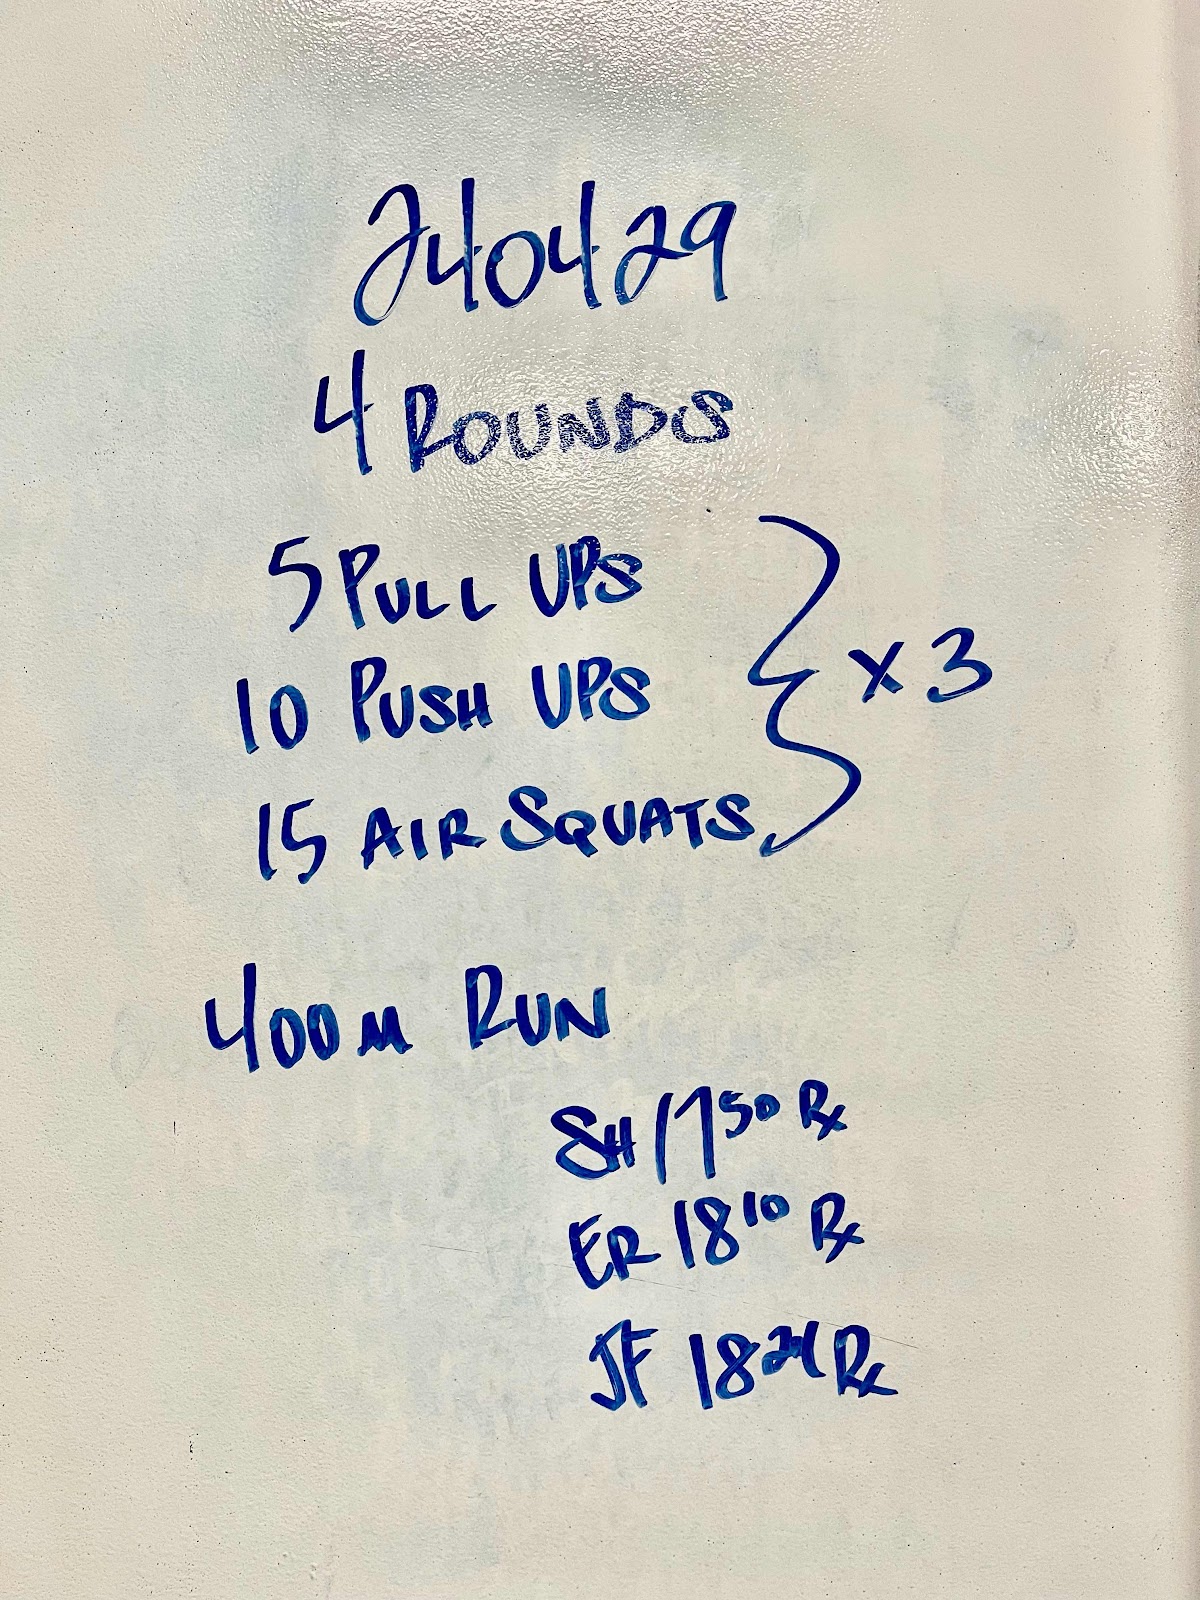 240429
4 ROUNDS
5 PULL UPS
10 PUSH UPS
15 AIR SQUATS
} x 3
400m RUN
SH 17 50 Rx
ER 18 10 Rx
JF 18 24 Rx